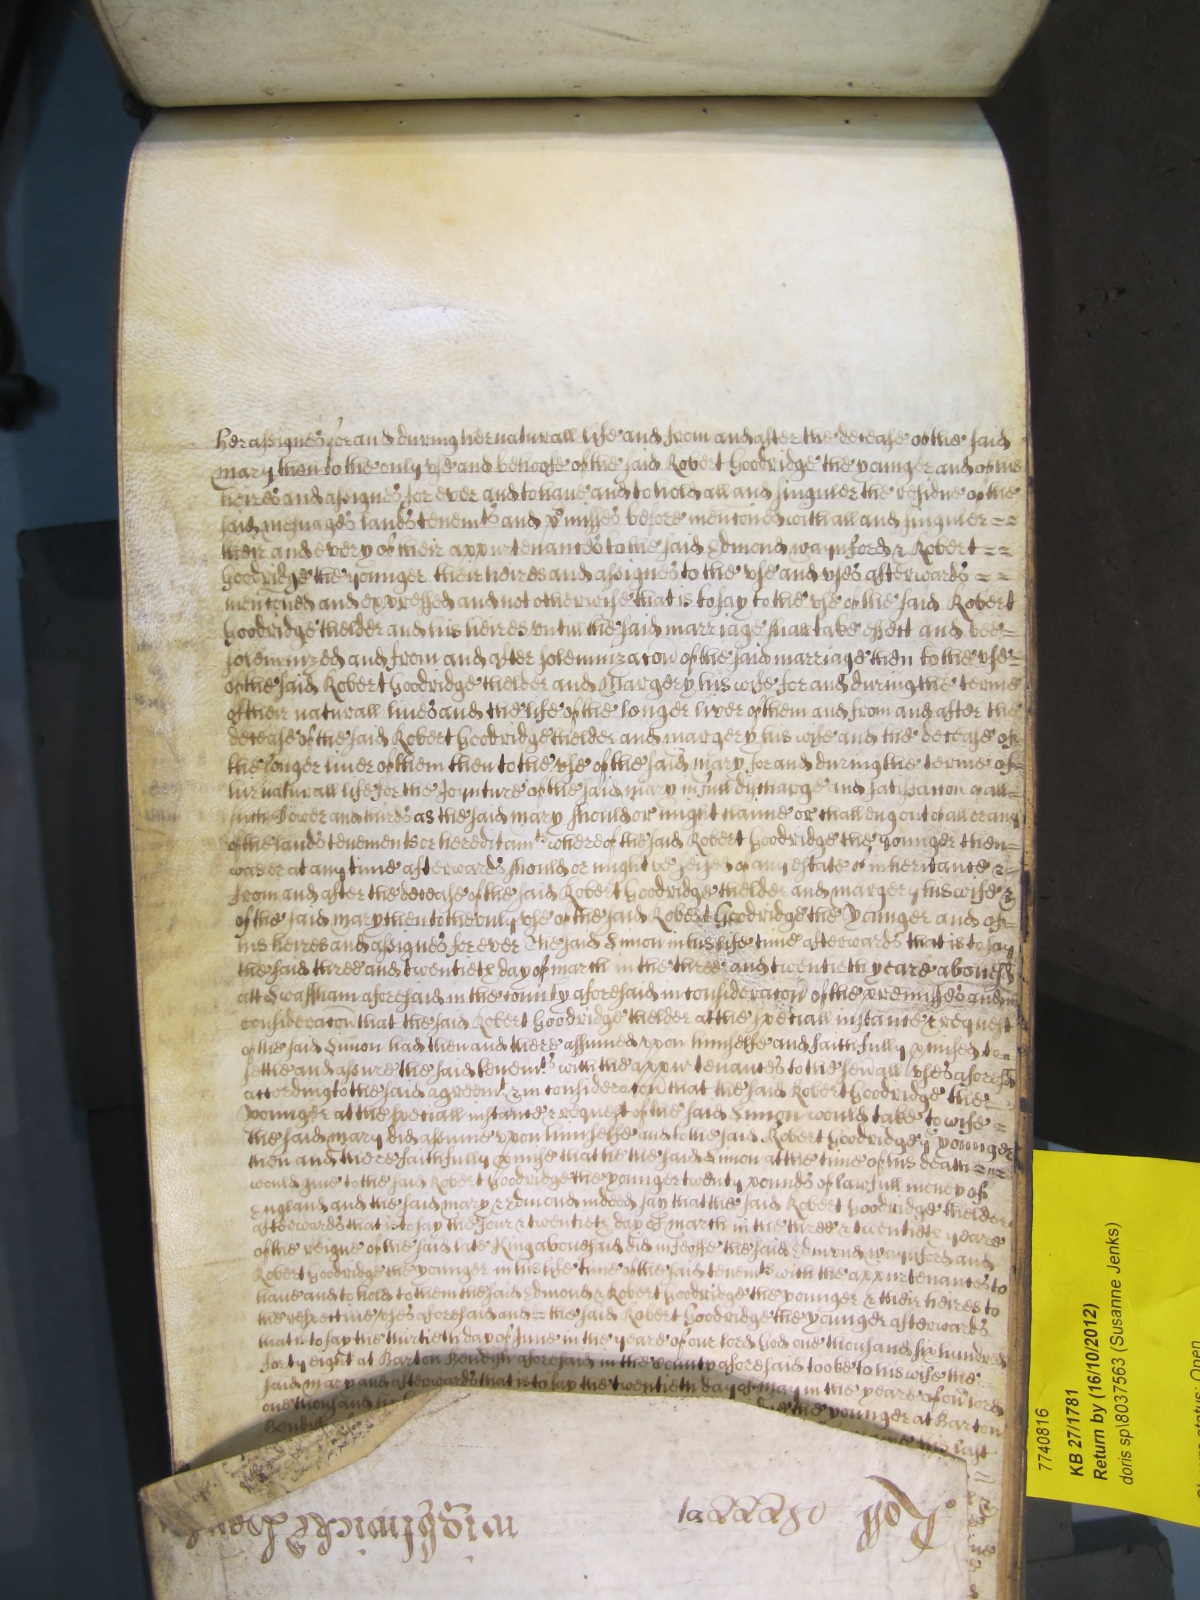 her assignes for and during her naturall life and from and after the decease of the said
mary then to the only use and behoofe of the said Robert Goodridge the younger and of his
heires and assignes for ever and to have and to hold all and singuler the residue of the
said messuages lands tenemts and pmisses before mentoned with all and singuler
their and every of their appurtenances to the said Edmond waynford & Robert
Goodridge the younger their heires and assignes to the use and uses afterwards
mentoned and expressed and not otherwise that is to say to the use of the said Robert
Goodridge thelder and his heires untill the said marriage shall take effect and bee
solemnized and from and after solemnizacon of the said marriage then to the use
of the said Robert Goodridge thelder and Margery his wife for and during the terme
of their naturall lives and the life of the longer liver of them and from and after the
decease of the said Robert Goodridge thelder and margery his wife and the decease of
the longer liver of them then to the use of the said mary for and during the terme of
her naturall life for the Joynture of the said mary in full discharge and satisfaccon of all
such Dower and thirds as the said mary should or might clayme or challeng out of all or any
of the lands tenements or hereditamts whereof the said Robert Goodridge the younger then
was or at any time afterwards should or might be seised of any estate of inheritance &
from and after the decease of the said Robert Goodridge thelder and margery his wife &
of the said mary then to the only use of the said Robert Goodridge the younger and of
his heires and assignes for ever the said Simon in his life time afterwards that is to say
the said three and twentieth day of march in the three and twentieth yeare abovesd
att Swaffham aforesaid in the county aforesaid in consideracon of the premisses and in
consideracon that the said Robert Goodridge thelder at the speciall instance & request
of the said Simon had then and there assumed upon himselfe and faithfully pmised to
settle and assure the said tenemts with the appurtenances to the sevall uses aforesd
according to the said agreemt & in consideracon that the said Robert Goodridge the
younger at the speciall instance & request of the said Simon would take to wife
the said mary did assume upon himselfe and to the said Robert Goodridge ye younger
then and there faithfully pmise that he the said Simon at the time of his death
would give to the said Robert Goodridge the younger twenty pounds of lawfull money of
England and the said mary & Edmond indeed say that the said Robert Goodridge thelder
afterwards that is to say the four & twentieth day of march in the three & twentieth yeare
of the reigne of the said late King abovesaid did infeoffe the said Edmund waynford and
Robert Goodridge the younger in his life time of the said tenemts with the appurtenances to
have and to hold to them the said Edmond & Robert Goodridge the younger & their heires to
the respective uses aforesaid and the said Robert Goodridge the younger afterwards
that is to say the thirtieth day of June in the yeare of our lord God one thousand six hundred
forty eight at Barton Bendish aforesaid in the county aforesaid tooke to his wife the
said mary and afterwards that is to say the twentieth day of may in the yeare of our lord
one thousand
the younger at Barton
Bendish
Roll
7740816
KB 27/1781
Return by (16/10/2012)
doris sp\8037563 (Susanne Jenks)
status: Open